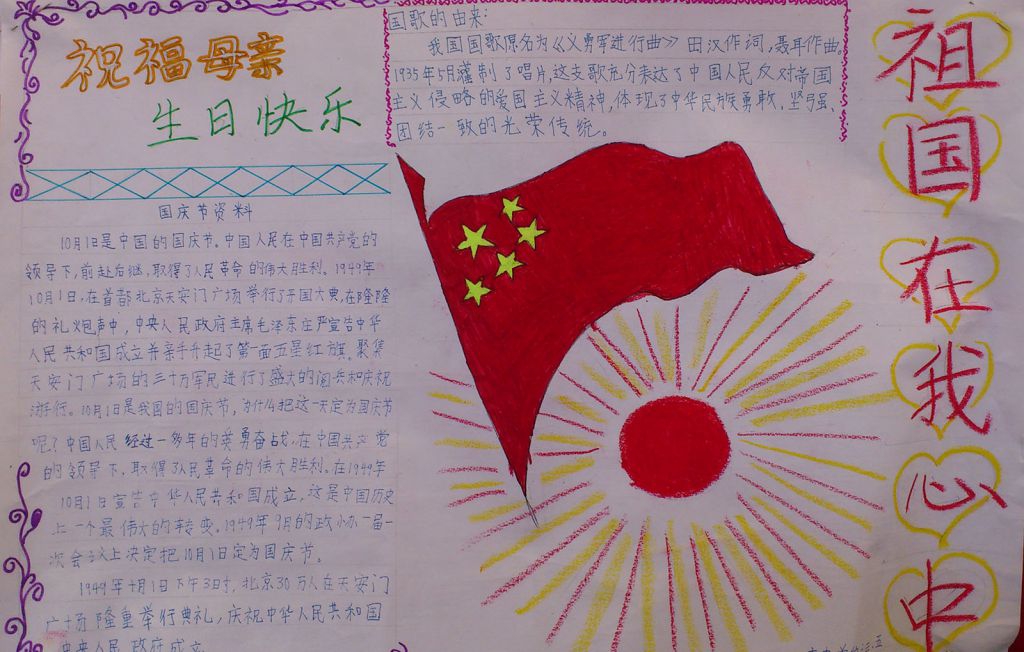 祝福母亲
生日快乐
国歌的由来:
我国国歌原名为《义勇军进行曲》田汉作词,聂耳作曲。
1935年5月灌制了唱片,这支歌充分表达了中国人民反对帝国
主义侵略的爱国主义精神,体现了中华民族勇敢、坚强、
团结一致的光荣传统。
祖
国
在
我
心
中
国庆节资料
10月1日是中国的国庆节。中国人民在中国共产党的
领导下,前赴后继,取得了人民革命的伟大胜利。1949年
10月1日,在首都北京天安门广场举行了开国大典,在隆隆
的礼炮声中,中央人民政府主席毛泽东庄严宣告中华
人民共和国成立并亲手升起了第一面五星红旗。聚集
天安门广场的三十万军民进行了盛大的阅兵和庆祝
游行。10月1日是我国的国庆节,为什么把这一天定为国庆节
呢?中国人民经过一多年的英勇奋战,在中国共产党
的领导下,取得了人民革命的伟大胜利。在1949年
10月1日宣告中华人民共和国成立,这是中国历史
上一个最伟大的转变。1949年9月的政协一届一
次会议上决定把10月1日定为国庆节。
1949年十月1日下午3时,北京30万人在天安门
广场隆重举行典礼,庆祝中华人民共和国
中央人民政府成立